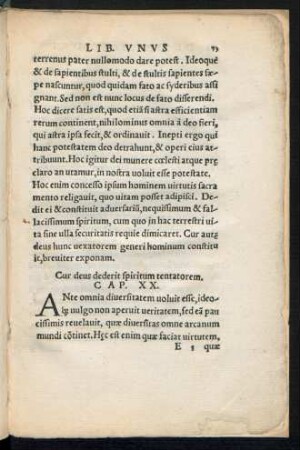 LIB. VNVS
terrenus pater nullomodo dare potest. Ideoque
& de sapientibus stulti, & de stultis sapientes sæ-
pe nascuntur, quod quidam fato ac syderibus assi
gnant. Sed non est nunc locus de fato disserendi.
Hoc dicere satis est, quod etiã si astra efficientiam
rerum continent, nihilominus omnia à deo fieri,
qui astra ipsa fecit, & ordinauit. Inepti ergo qui
hanc potestatem deo detrahunt, & operi eius at-
tribuunt. Hoc igitur dei munere cœlesti atque præ
claro an utamur, in nostra uoluit esse potestate.
Hoc enim concesso ipsum hominem uirtutis sacra
mento religauit, quo uitam posset adipisci. De-
dit ei & constituit aduersariũ, nequissimum & fal
lacissimum spiritum, cum quo in hac terrestri ui-
ta sine ulla securitatis requie dimicaret. Cur autẽ
deus hunc uexatorem generi hominum constitu
it, breuiter exponam.
Cur deus dederit spiritum tentatorem.
CAP. XX.
ANte omnia diuersitatem uoluit esse, ideo-
qꝫ uulgo non aperuit ueritatem, sed eã pau
cissimis reuelauit, quæ diuersitas omne arcanum
mundi cõtinet. Hęc est enim quæ faciat uirtutem,
E quæ